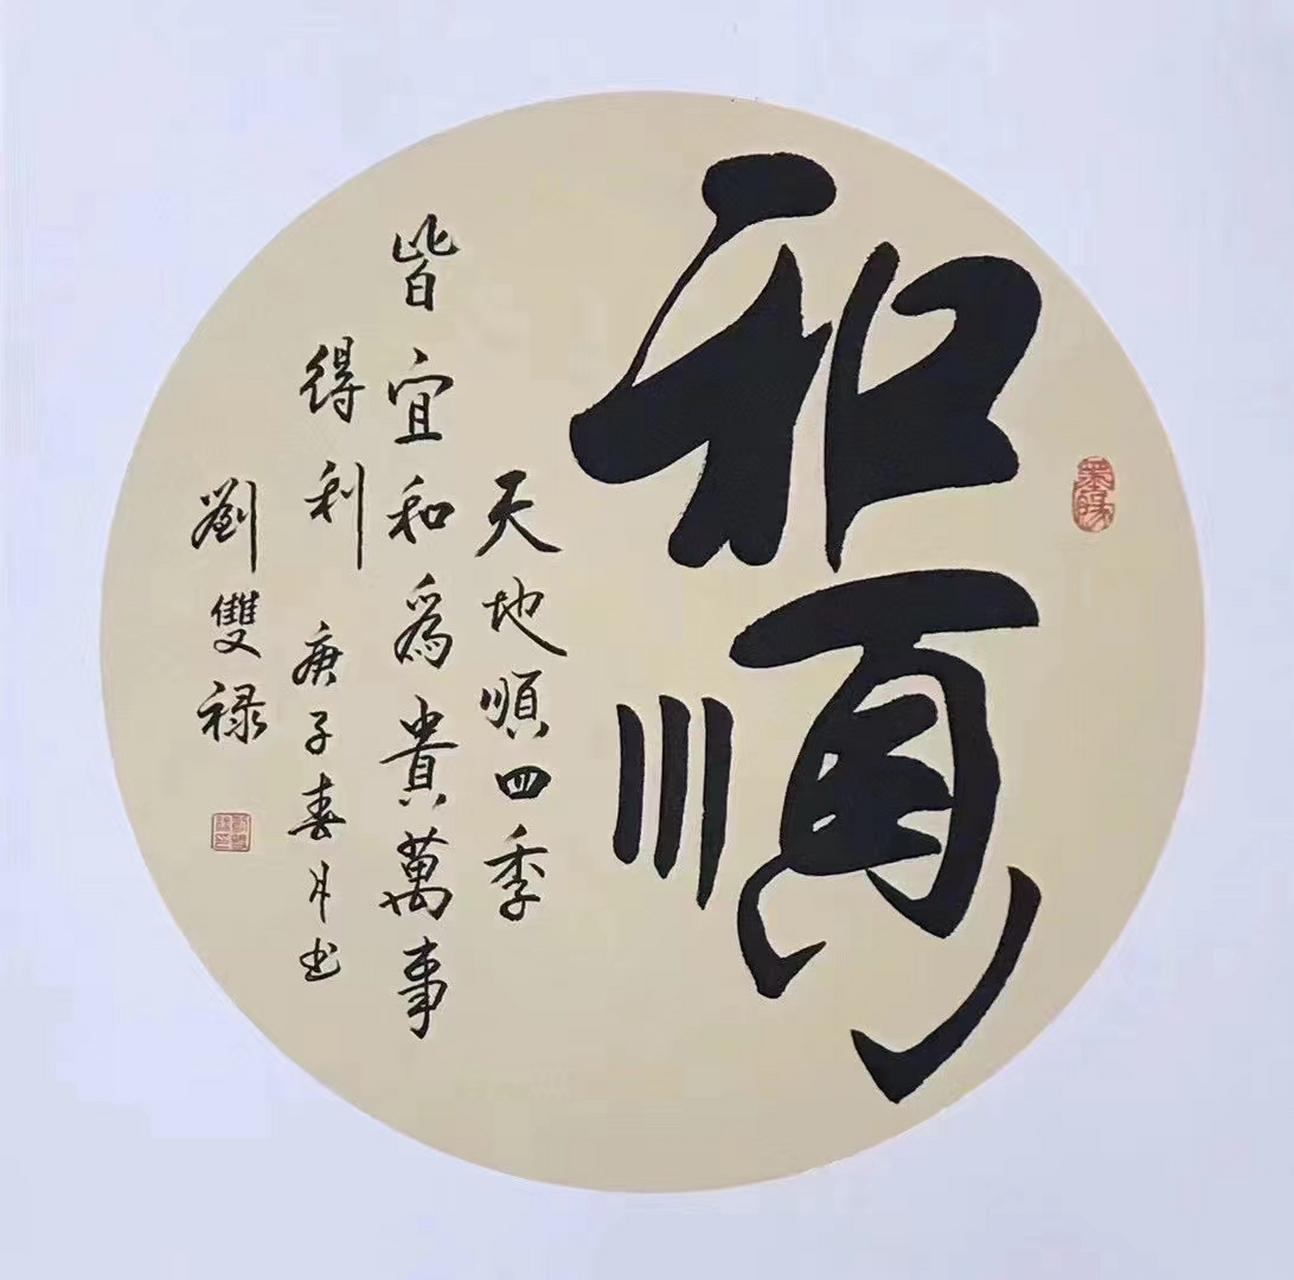 和順
天地順四季
皆宜和為貴萬事
得利 庚子春月书
劉雙禄
墨緣